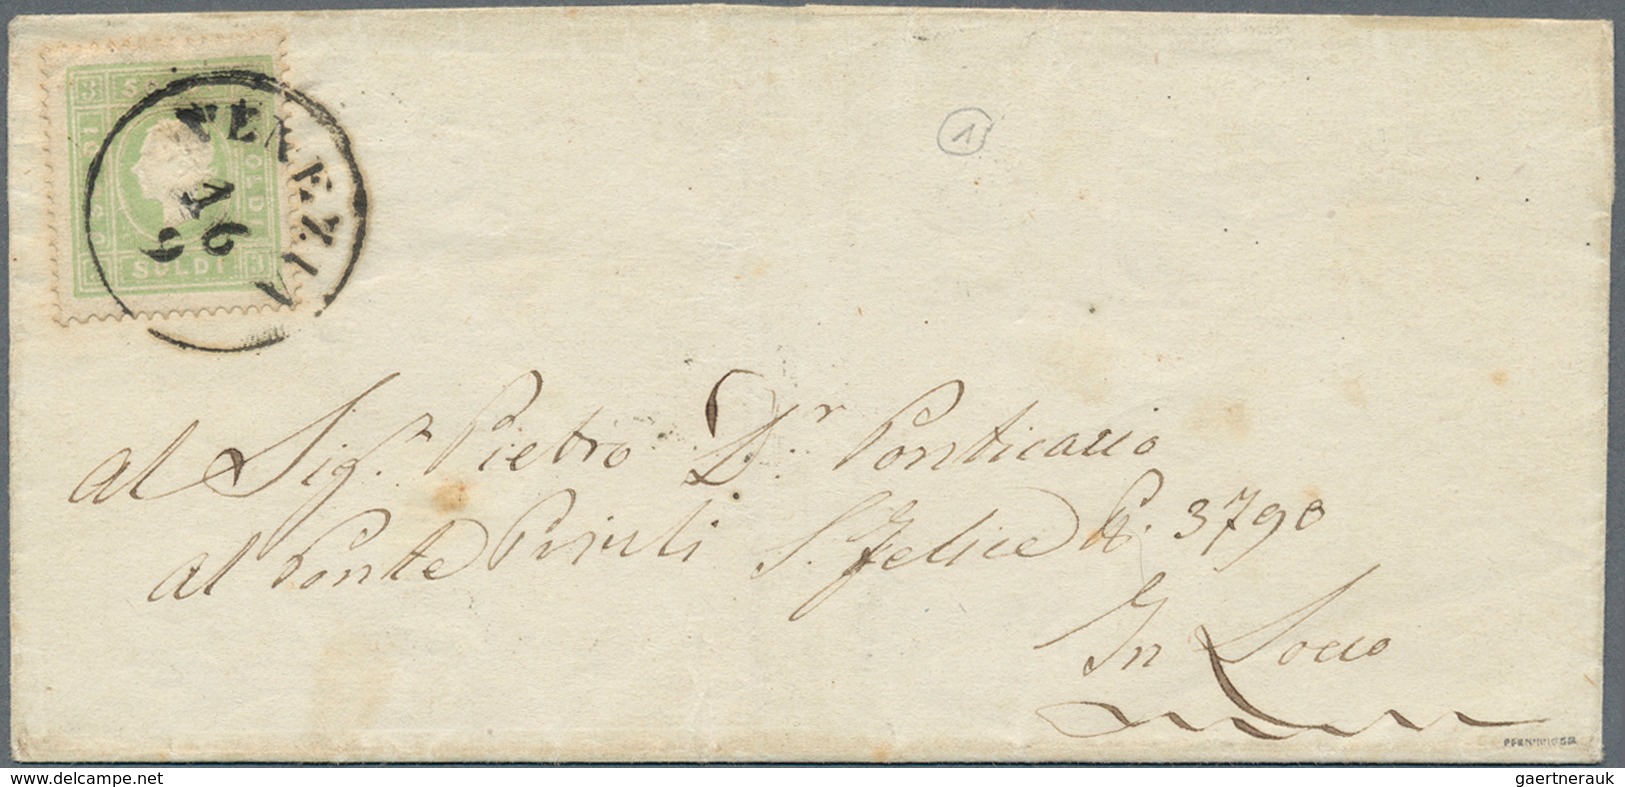 3 SOLDI
SOLDI
SOLDI 3
VENEZIA
16
9
1
al Sig.r Pietro D.r Ponticaccio
al Ponte Priuli S. Felice N. 3790
In Locco
PFENNINGER
delcampe.net
gaertnerauk